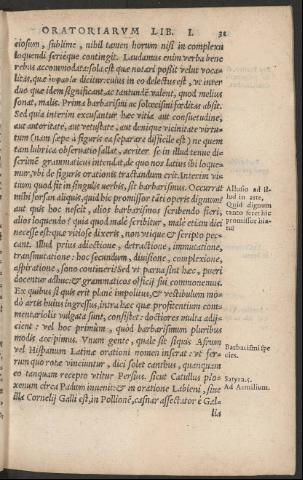 ORATORIARVM LIB. I. 31
ciosum, sublime, nihil tamen horum nisi in complexu
loquendi serieque contingit. Laudamus enim verba bene
rebus accommodata: sola est quæ notari possit velut vocalitas
litas, quæ dicitur: cuius in eo delectus est, vt inter
duo quæ idem significant, ac tantundē valent, quod melius
sonat, malis. Prima barbarismi ac solœcismi fœditas absit.
Sed quia interim excusantur hæc vitia aut consuetudine,
aut autoritate, aut vetustate, aut denique vicinitate virtutum
(nam sæpe à figuris ea separare difficile est) ne quem
tam lubrica obseruatio fallat, acriter se in illud tenue discrimē
grammaticus intendat, de quo nos latius ibi loquemur,
vbi de figuris orationis tractandum erit. Interim vitium
quod fit in singulis verbis, sit barbarismus. Occurrat
mihi forsan aliquis, quid hic promisso tāti operis dignum?
aut quis hoc nescit, alios barbarismos scribendo fieri,
alios loquendo? quia quod male scribitur, male etiam dici
necesse est: quæ vitiose dixeris, non vtique & scripto peccant.
illud prius adiectione, detractione, immutatione,
transmutatione: hoc secundum, diuisione, complexione,
aspiratione, sono contineri. Sed vt parua sint hæc, pueri
docentur adhuc: & grammaticos officij sui commonemus.
Ex quibus si quis erit plane impolitus, & vestibulum modò
artis huius ingressus, intra hæc quæ profitentium commentariolis
vulgata sunt, consistet: doctiores multa adijcient:
vel hoc primum, quòd barbarismum pluribus
modis accipimus. Vnum gente, quale sit siquis Afrum
vel Hispanum Latinæ orationi nomen inserat: vt ferrum
quo rotæ vinciuntur, dici solet canthus, quanquam
eo tanquam recepto vtitur Persius. sicut Catullus ploxenum
circa Padum inuenit: & in oratione Labieni, siue
illa Cornelij Galli est, in Pollionē, casnar assectator è Gallia
lia
Allusio ad illud
in arte,
Quid dignum
tanto feret hic
promissor hiatu
Barbarismi species.
Satyra 5.